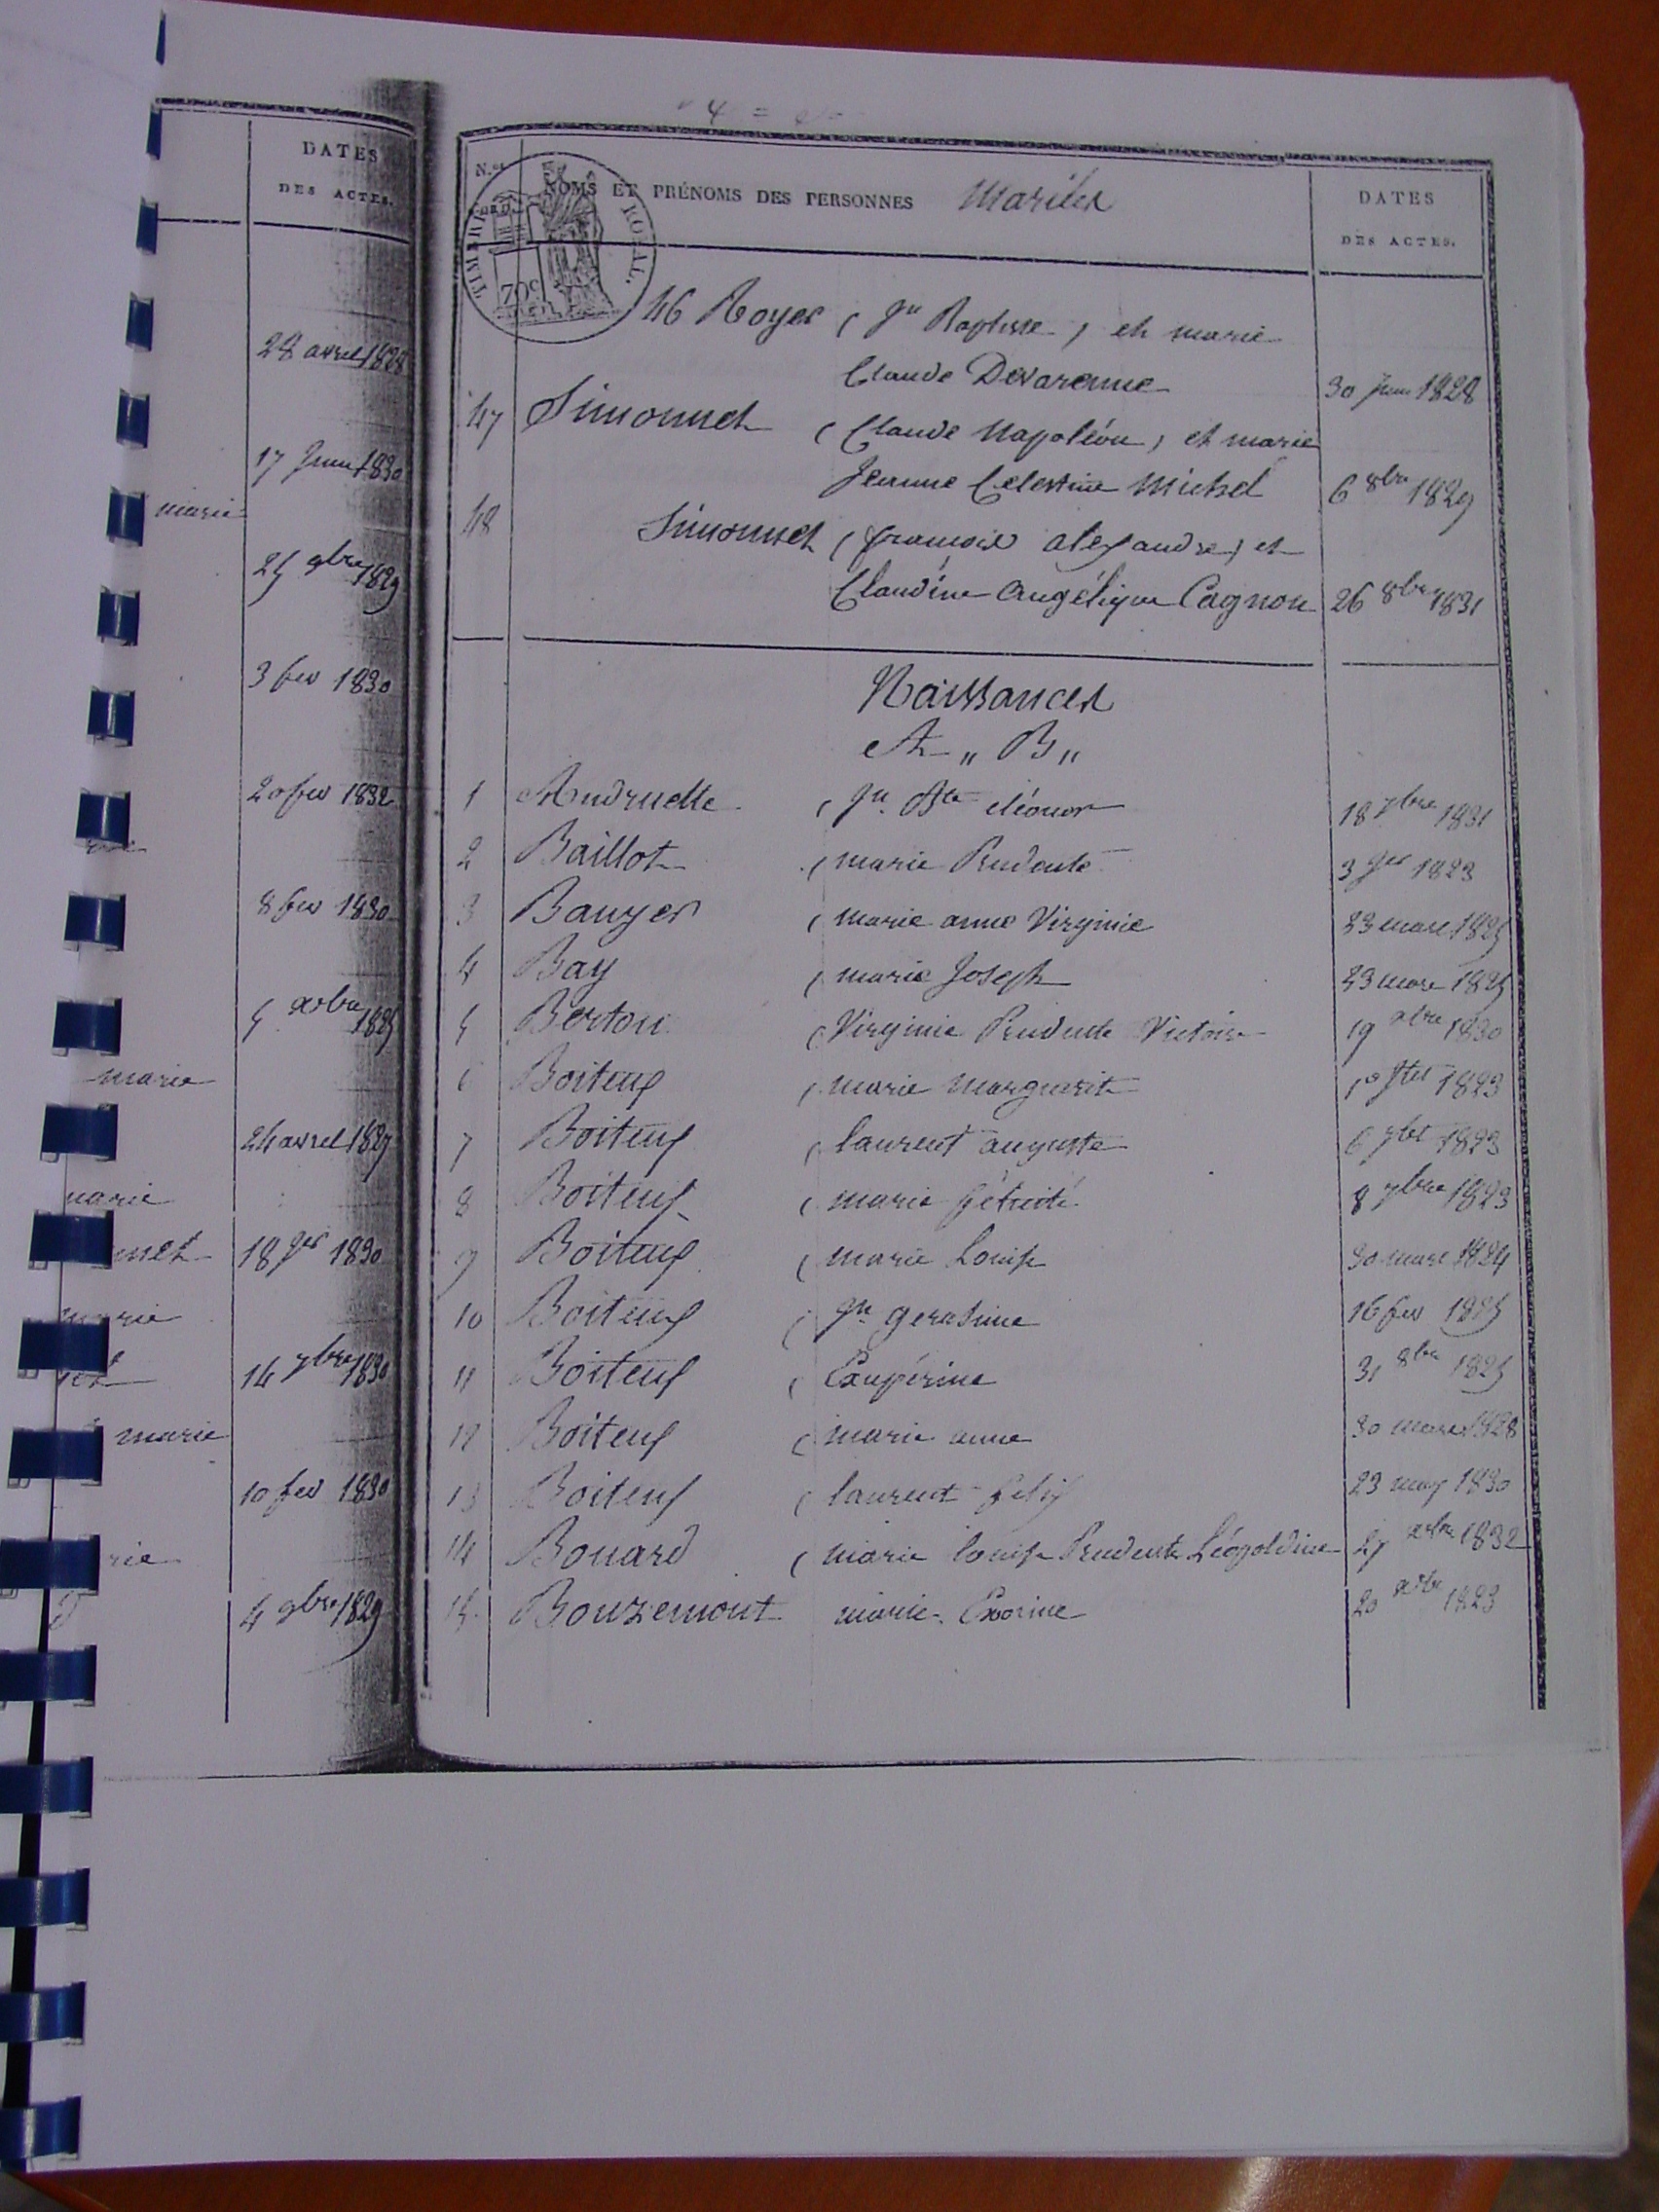 DATES
DES ACTES.
28 avril 1828
17 Juin 1830
marie
25 9bre 1829
3 fev 1830
20 fev 1832
8 fev 1830
5 xbre 1825
marie
24 avril 1829
marie
18 1830
14 7bre 1830
marie
10 fev 1830
4 9bre 1829
N.os
NOMS ET PRÉNOMS DES PERSONNES Mariées
DATES
DES ACTES.
TIMBRE ROYAL.
70c
46 Royer ( Jn Baptiste ) et marie
Claude Devarenne 30 Juin 1828
47 Simonnet ( Claude Napoléon ) et marie
Jeanne Celestine Michel 6 8bre 1829
48 Simonnet ( françois alexandre ) et
Claudine Angélique Cagnon 26 8bre 1831
Naissances
A " B "
1 Andruette ( Jn Bte eléonor 18 7bre 1831
2 Baillot ( marie Prudente 3 1823
3 Bauyer ( marie anne Virginie 23 mars 1825
4 Bay ( marie Joseph 23 mars 1825
5 Berton ( Virginie Prudente Victoire 19 1830
6 Boiteux ( marie marguerite 1823
7 Boiteux ( laurent auguste 6 1823
8 Boiteux ( marie 8 7bre 1823
9 Boiteux ( marie Louise 30 mars 1824
10 Boiteux ( Jn gerasime 16 fev 1825
11 Boiteux ( Exupérine 31 8bre 1825
12 Boiteux ( marie anne 30 mars 1828
13 Boiteux ( laurent felix 23 may 1830
14 Bouard ( marie louise Prudente Léopoldine 27 xbre 1832
15 Bouzemont marie 20 xbre 1823